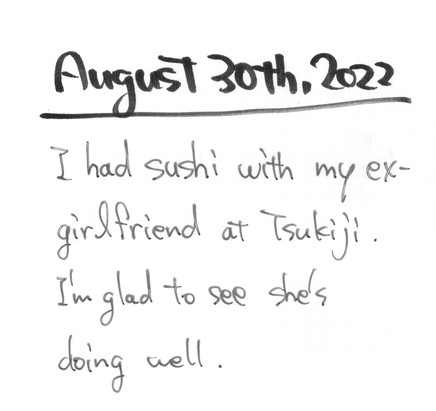 August 30th, 2022
I had sushi with my ex-
girlfriend at Tsukiji.
I'm glad to see she's
doing well.